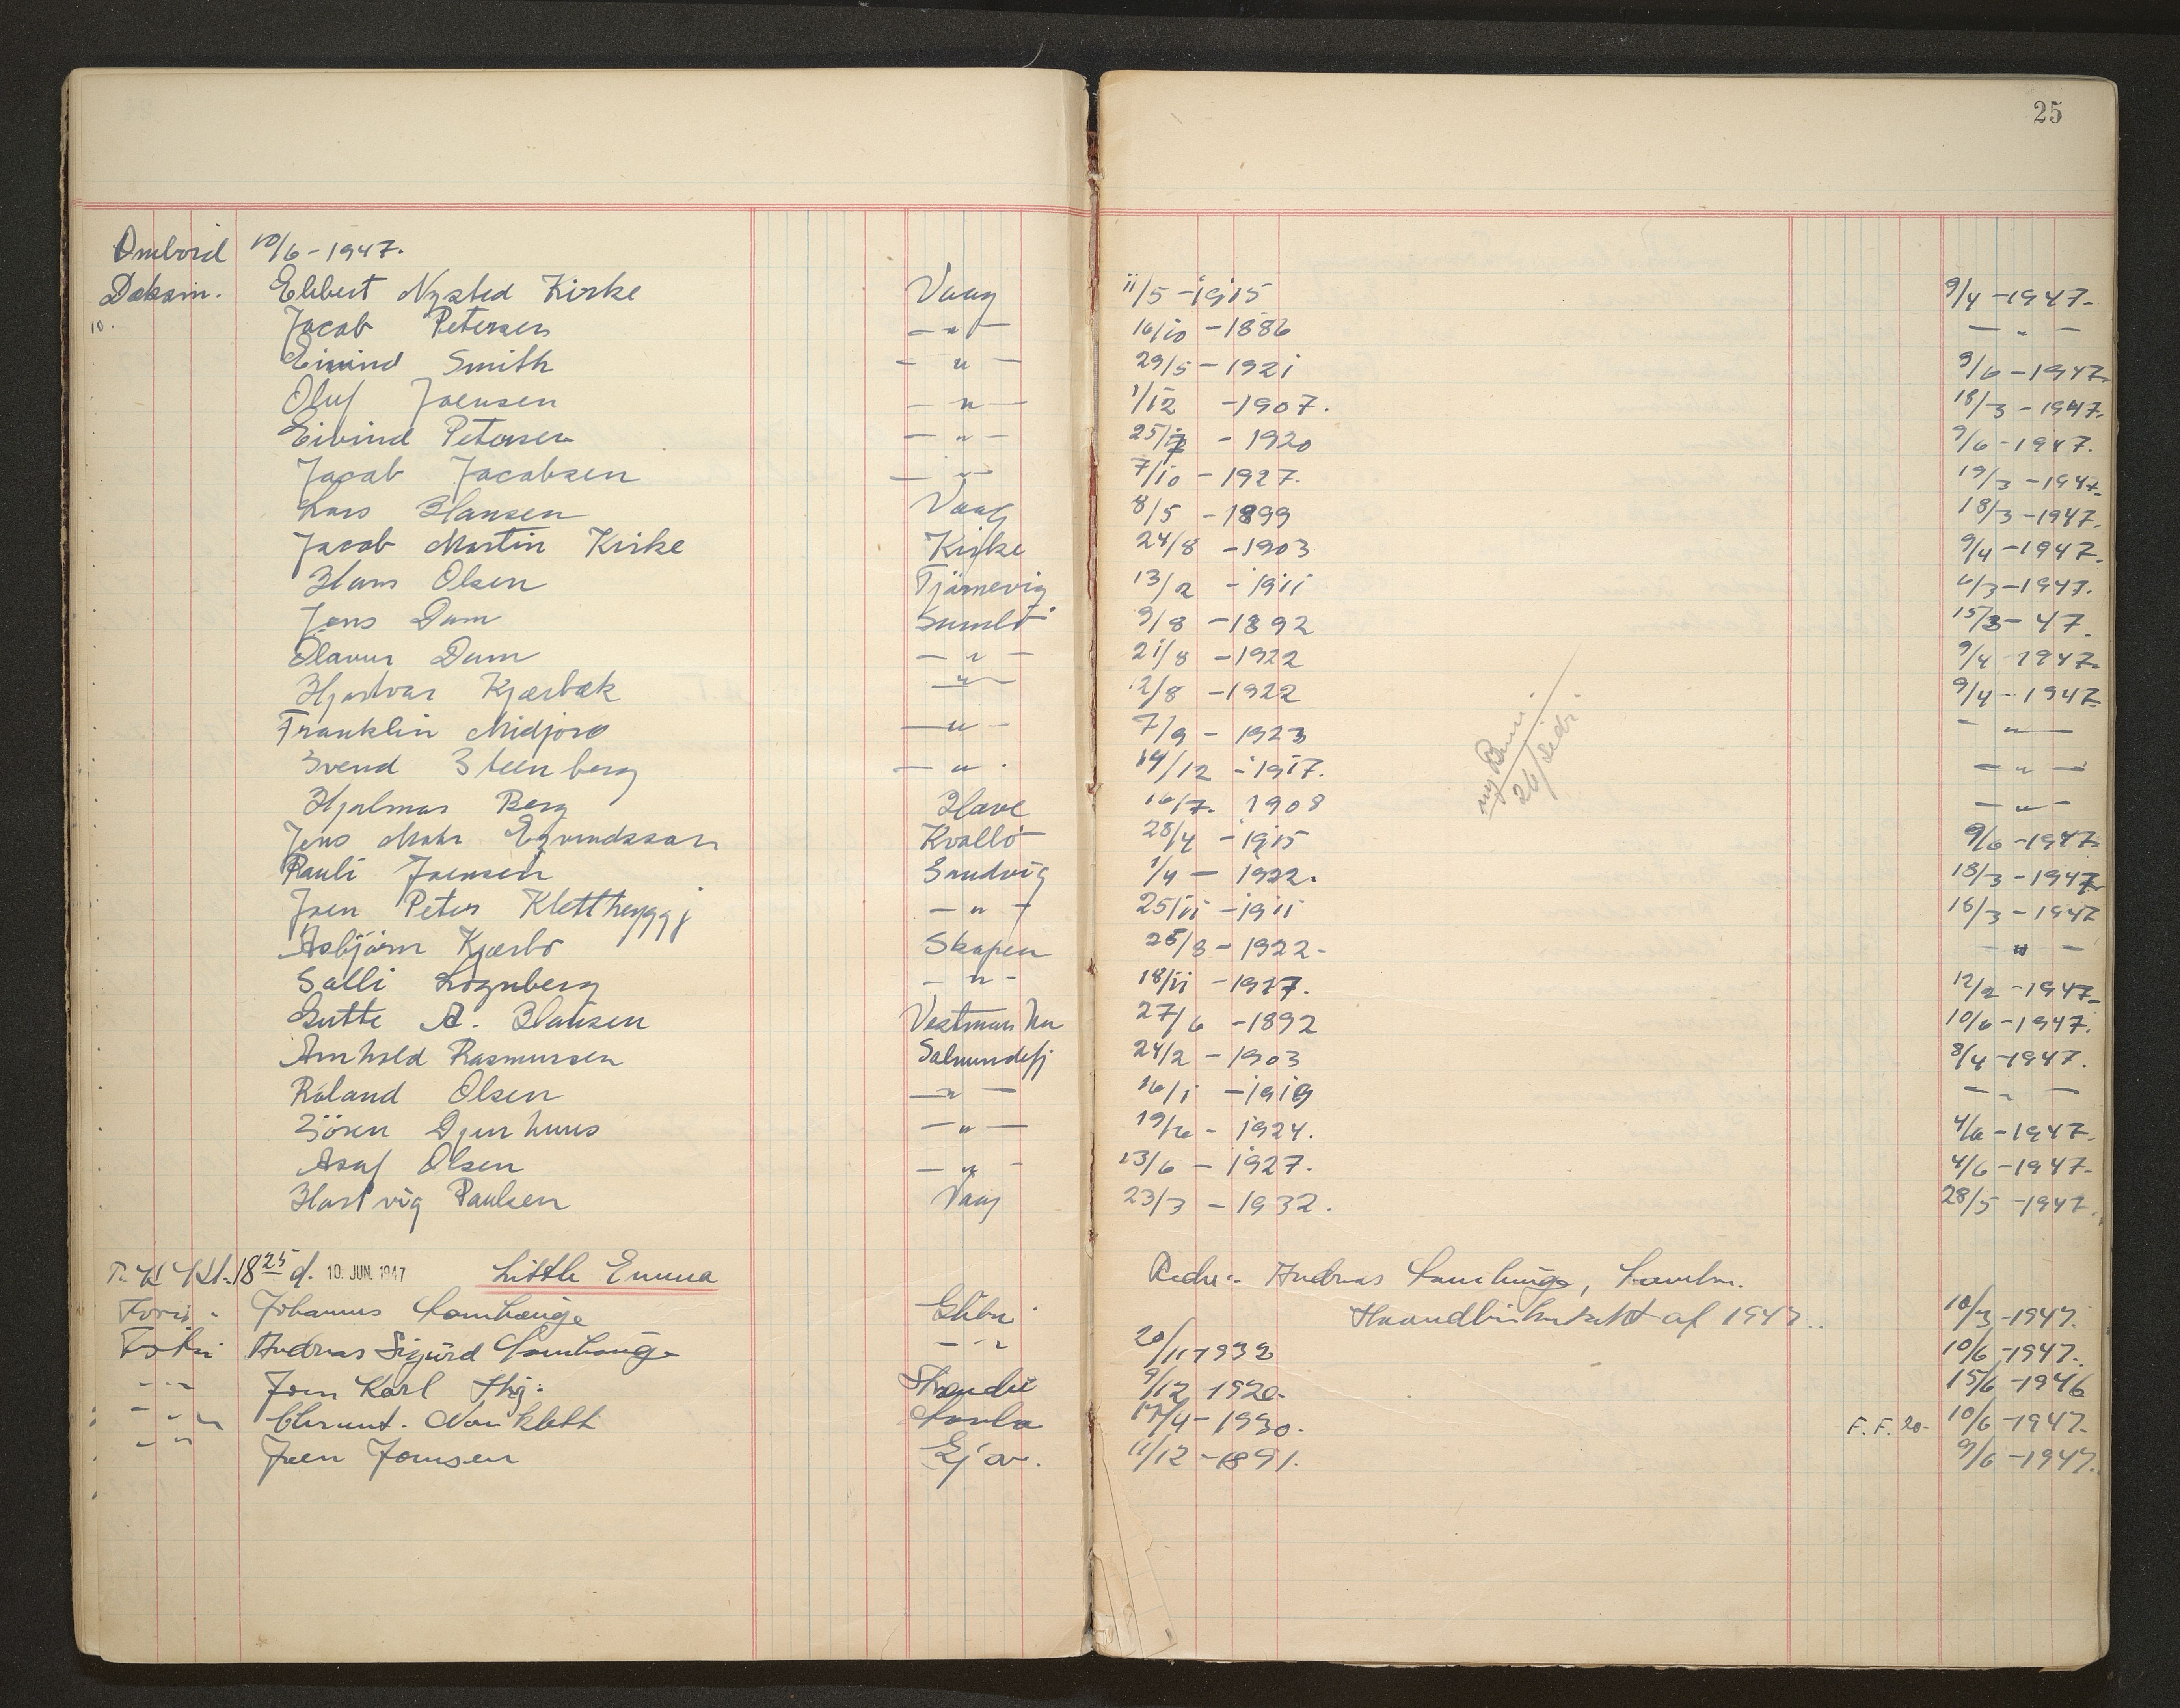 25
Ombord 10/6-1947.
Daksm. Ebbert Nysted Kirke Vaag 11/5-1915 9/4-1947-
10. Jacob Petersen —"— 16/10-1886 —"—
Eivind Smith —"— 29/5-1921 9/6-1947.
Oluf Joensen —"— 1/12-1907. 18/3-1947.
Eivind Petersen —"— 25/ - 1920 9/6-1947.
Jacob Jacobsen —"— 7/10-1927. 19/3-1947.
Lars Hansen Vaag 8/5-1899 18/3-1947.
Jacob Martin Kirke Kirke 24/8-1903 9/4-1947.
Hans Olsen Tjörnevig 13/2-1911 6/3-1947.
Jens Dam Sumbö 9/8-1892 15/3-47.
Olavur Dam —"— 21/8-1922 9/4-1947.
Hjartvar Kjærbæk —"— 12/8-1922 9/4-1947.
Franklin Midjord —"— 7/9-1923 —"—
Svend Steenberg —"— 19/12-1917. —"—
Hjalmar Berg Hove 16/7-1908 —"—
Jens Mohr Eyvindsson Kvalbö 28/4-1915 9/6-1947.
Pauli Joensen Sandvig 1/4-1922. 18/3-1947
Joen Peter Kletthyggj —"— 25/11-1911 16/3-1947
Asbjörn Kjærbo Skapen 28/8-1922- —"—
Salli Lognberg —"— 18/11-1927. 12/2-1947-
Gutte A. Hansen Vestmanhn 27/6-1892 10/6-1947.
Arnhold Rasmussen Salmundefj 24/2-1903 8/4-1947.
Roland Olsen —"— 16/1-1919 —"—
Sjören Djurhuus —"— 19/ - 1924. 4/6-1947.
Asaf Olsen —"— 23/6-1927. 4/6-1947-
Hartvig Paulsen Vaag 23/3-1932. 28/5-1947.
ny
26/
Kl. 18 25 d. 10. JUN. 1947 Little Emma Andreas
Johannus 1947.. 10/3-1947.
Andreas Sigurd —"— 20/11-1932 10/6-1947.
—"— Karl 9/12 1920- 15/6-1946
—"— 1930. F.F. 20- 10/6-1947.
—"— Joen Joensen 11/12-1891. 9/6-1947.